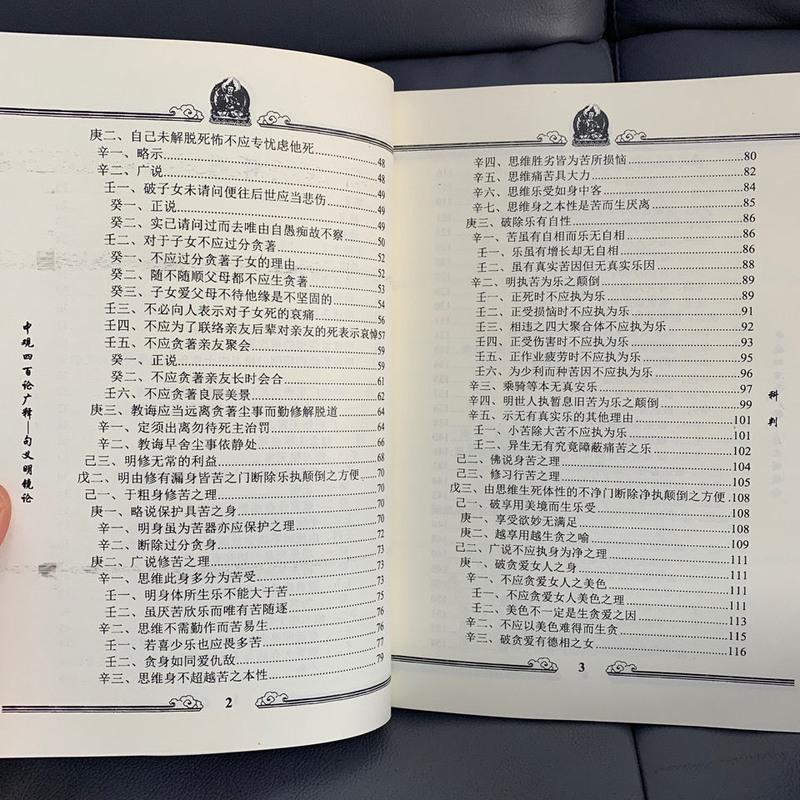 庚二、自己未解脱死怖不应专忧虑他死……48
辛一、略示……48
辛二、广说……49
壬一、破子女未请问便往后世应当悲伤……49
癸一、正说……49
癸二、实已请问过而去唯由自愚痴故不察……50
壬二、对于子女不应过分贪著……52
癸一、不应过分贪著子女的理由……52
癸二、随不随顺父母都不应生贪著……52
癸三、子女爱父母不待他缘是不坚固的……54
壬三、不必向人表示对子女死的哀痛……56
壬四、不应为了联络亲友后辈对亲友的死表示哀悼57
壬五、不应贪著亲友聚会……59
癸一、正说……59
癸二、不应贪著亲友长时会合……61
壬六、不应贪著良辰美景……62
庚三、教诲应当远离贪著尘事而勤修解脱道……64
辛一、定须出离勿待死主治罚……64
辛二、教诲早舍尘事依静处……66
己三、明修无常的利益……68
戊二、明由修有漏身皆苦之门断除乐执颠倒之方便……70
己一、于粗身修苦之理……70
庚一、略说保护具苦之身……70
辛一、明身虽为苦器亦应保护之理……70
辛二、断除过分贪身……72
庚二、广说修苦之理……73
辛一、思维此身多分为苦受……73
壬一、明身体所生乐不能大于苦……73
壬二、虽厌苦欣乐而唯有苦随逐……75
辛二、思维不需勤作而苦易生……76
壬一、若喜少乐也应畏多苦……76
壬二、贪身如同爱仇敌……77
辛三、思维身不超越苦之本性……79
2
中观四百论广释—句义明镜论
辛四、思维胜劣皆为苦所损恼……80
辛五、思维痛苦具大力……82
辛六、思维乐受如身中客……84
辛七、思维身之本性是苦而生厌离……85
庚三、破除乐有自性……86
辛一、苦虽有自相而乐无自相……86
壬一、乐虽有增长却无自相……86
壬二、虽有真实苦因但无真实乐因……88
辛二、明执苦为乐之颠倒……89
壬一、正死时不应执为乐……89
壬二、正受损恼时不应执为乐……91
壬三、相违之四大聚合体不应执为乐……92
壬四、正受伤害时不应执为乐……93
壬五、正作业疲劳时不应执为乐……95
壬六、为少利而种苦因不应执为乐……96
辛三、乘骑等本无真安乐……97
辛四、明世人执暂息旧苦为乐之颠倒……99
辛五、示无有真实乐的其他理由……101
壬一、小苦除大苦不应执为乐……101
壬二、异生无有究竟障蔽痛苦之乐……102
己二、佛说身苦之理……103
己三、修习行苦之理……104
戊三、由思维生死体性的不净门断除净执颠倒之方便..108
己一、破享用美境而生乐受……108
庚一、享受欲妙无满足……108
庚二、越享用越生贪之喻……109
己二、广说不应执身为净之理……111
庚一、破贪爱女人之身……111
辛一、不应贪爱女人之美色……111
壬一、不应贪爱女人美色之理……111
壬二、美色不一定是生贪爱之因……113
辛二、不应以美色难得而生贪……115
辛三、破贪爱有德相之女……116
3
科判